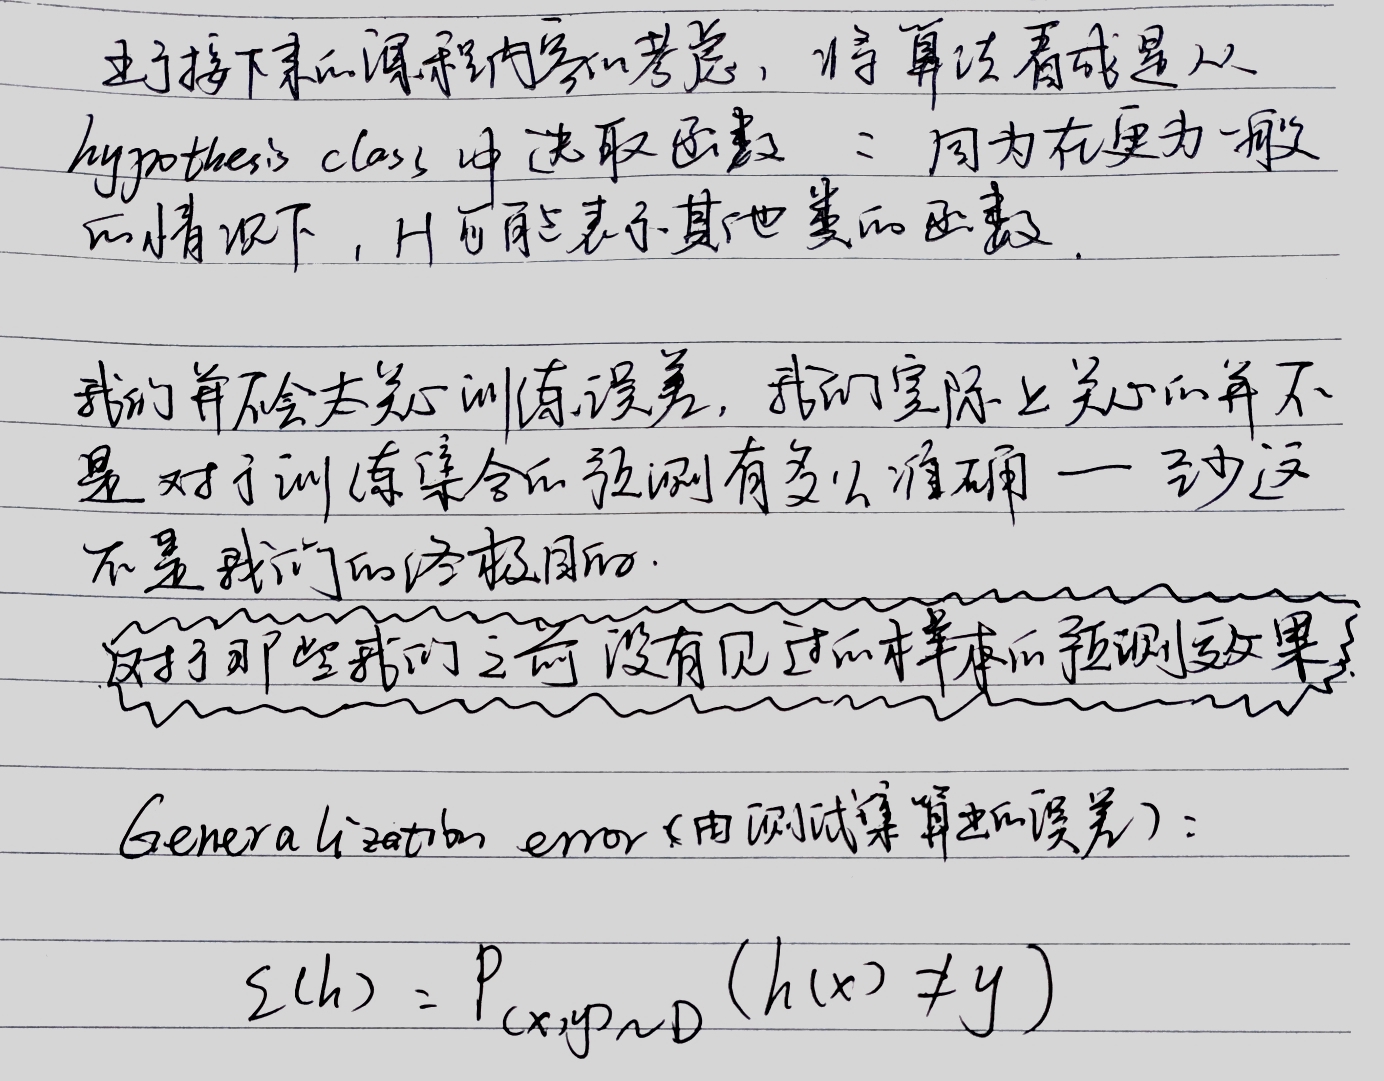 出于接下来的课程内容的考虑，将算法看成是从
hypothesis class 中选取函数 : 因为在更为一般
的情况下，H可能表示其他类的函数.
我们并不会太关心训练误差，我们实际上关心的并不
是对于训练集合的预测有多么准确 — 至少这
不是我们的终极目的.
对于那些我们之前没有见过的样本的预测效果
Generalization error (由测试集算出的误差) :
ε(h) = P(x,y)~D (h(x) ≠ y)